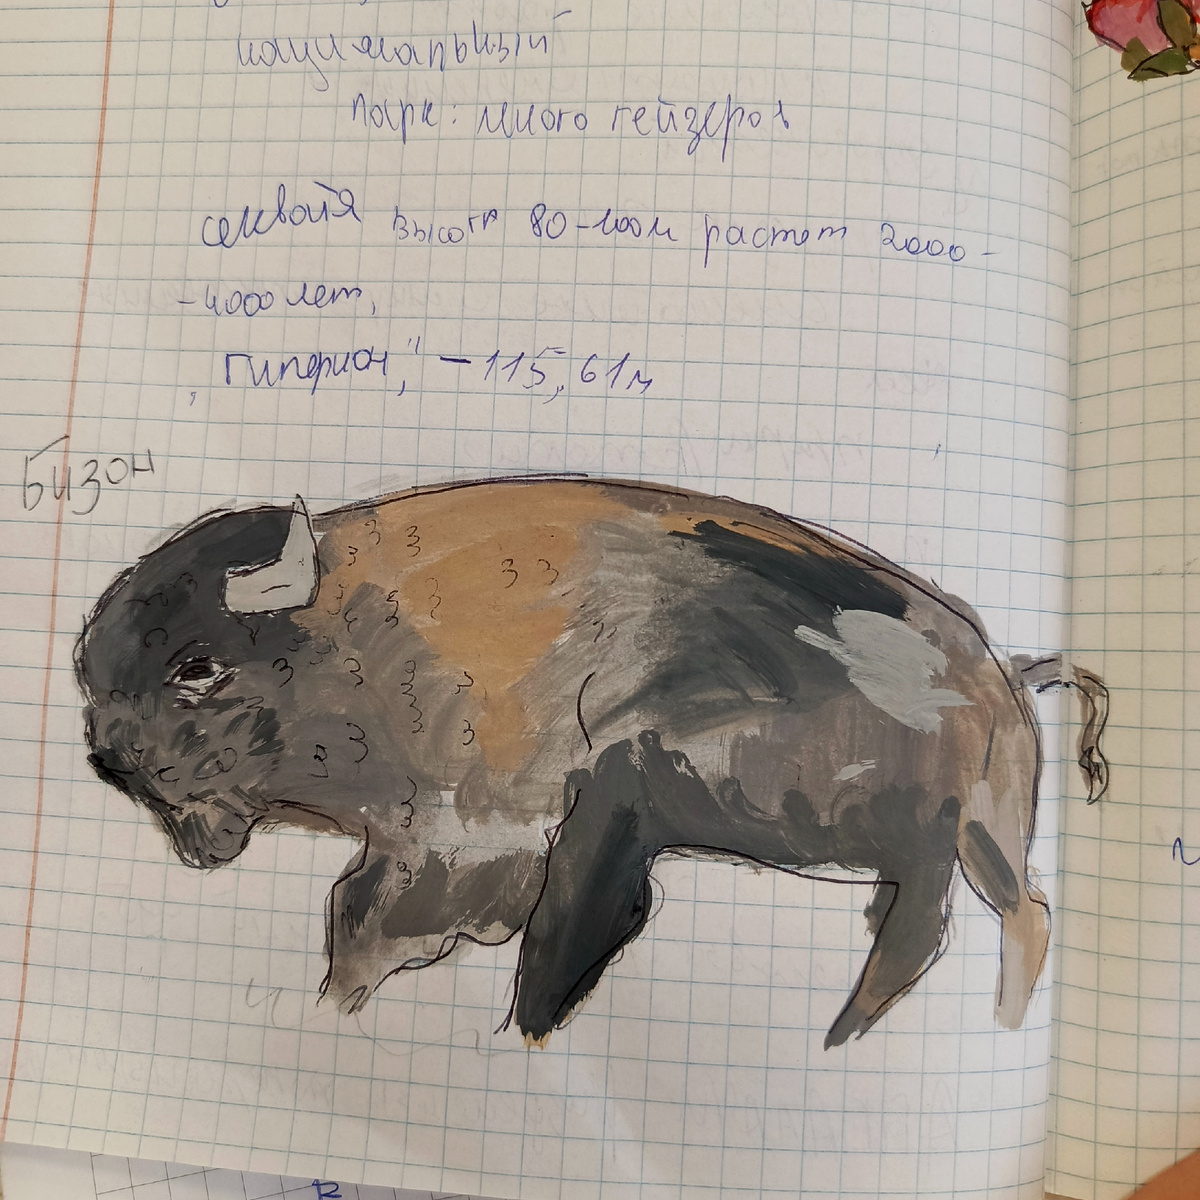 национальный
парк: много гейзеров
секвойя высота 80-100м растет 2000-
-4000 лет,
„Гиперион," - 115,61м
Бизон